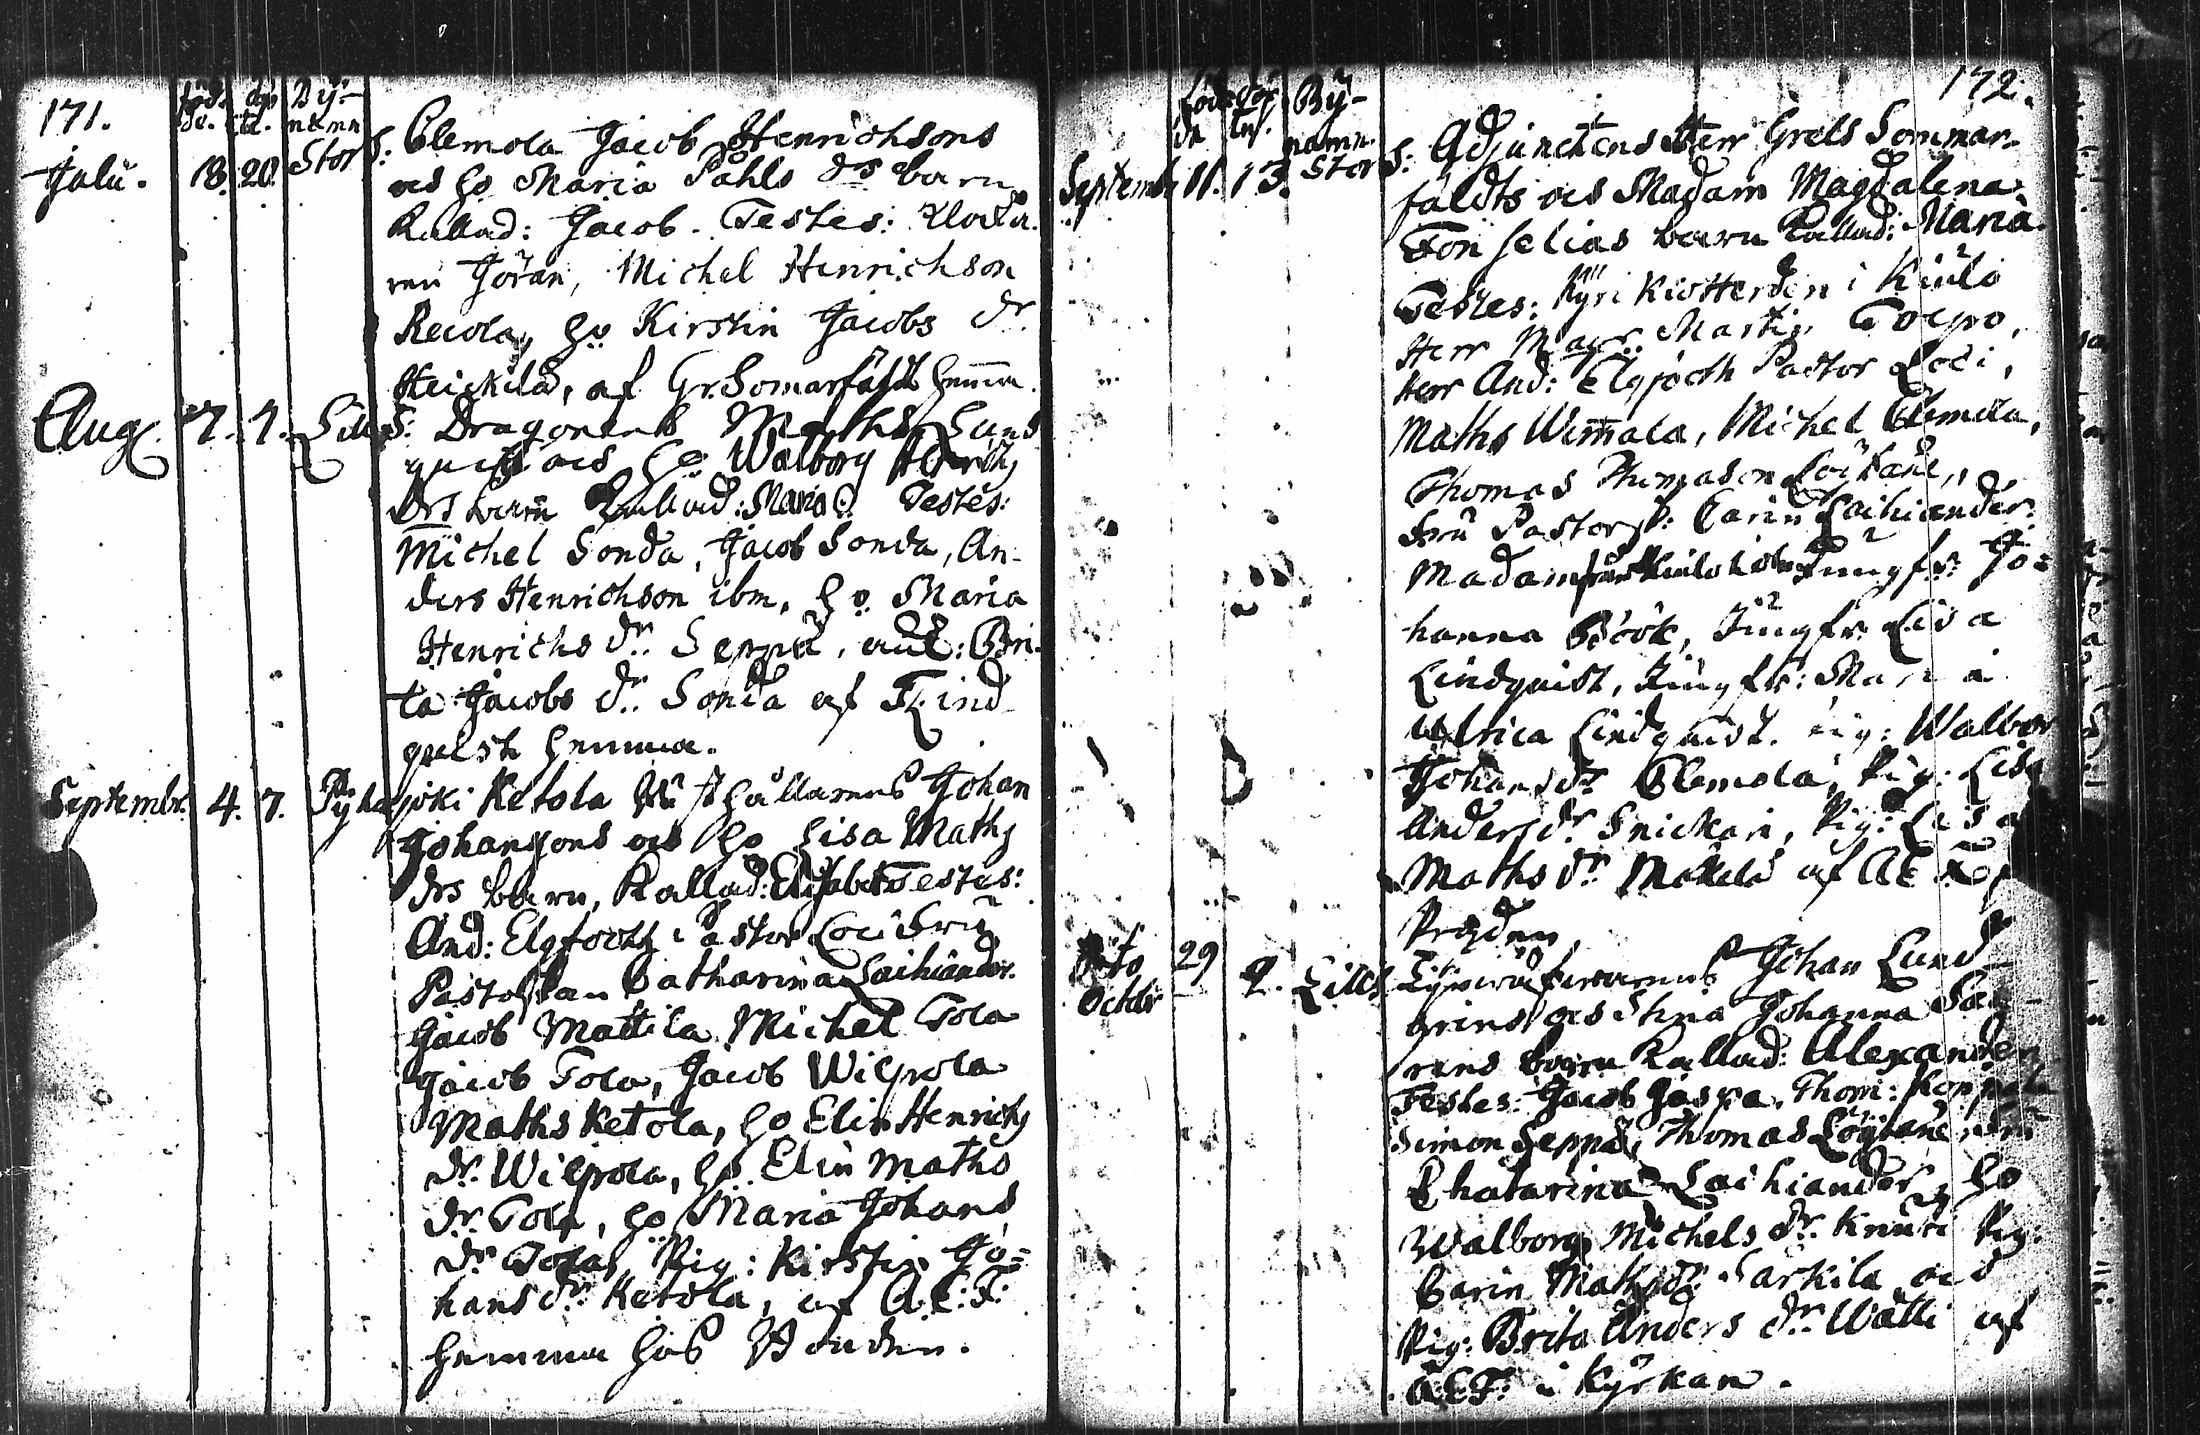 171.
föd- döp- Bÿ-
de. te. namn
Julii. 18. 20. Stor S: Clemola Jacob Henrichsons
och ho Maria Påhls drs barn
Kallad: Jacob. Testes: Klocka-
ren Göran, Michel Henrichson
Recola, ho Kirstin Jacobs dr
Heickilä, af Gr. Somarfäldt hemma.
Aug. 7. Lille S: Dragonens Maths Lund
quist och ho Walborg Henrichs
drs barn Kallad: Maria. Testes:
Michel Sonda, Jacob Sonda, An-
ders Henrichson ibm, ho Maria
Henrichs dr. Seppä, och: Bri-
ta Jacobs dr. Sonda af Lind
quist hemma.
Septembr. 4. 7. Pyhäjoki Ketola hållarens Johan
Johansons och ho Lisa Maths
drs barn, Kallad: Elisabet Testes:
And: Elgfooth Pastor Loci Fru
Pastorskan Catharina Laihiander.
Jacob Mattila Michel Tola
Jacob Tola, Jacob Wilpola
Maths Ketola, ho Elin Henrichs
dr. Wilpola, ho Elin Maths
dr. Tola, ho Maria Johans
dr Tola, Pig: Kirstin Jo=
hans dr. Ketola, af A.E:F:
hemma hos Bonden.
172.
föd- döp- Bÿ-
de namn
Septembr 11. 13. Stor S: Adjunctens Herr Grels Sommar-
fäldts och Madam Magdalena
Fonselias barn Kallad: Maria.
Testes: i Kiulo
Herr Magr. Martin Tolpo,
Herr And: Elgfooth Pastor Loci,
Maths Wimmala, Michel Clemola,
Thomas Thomason
Fru Pastorsk: Carin Laihiander.
Madam Jungfr: Jo=
hanna Böök, Jungfr: Lisa
Lindquist, Jungfr: Maria
Ulrica Lindquist. Pig: Walbor
Johans dr Clemola, Pig: Lisa
Anders dr Snickari, Pig: Lisa
Maths dr. Mäkelä af
Octobr 29 2. Lille S. Johan Lund
grens och Stina Johanna
barn Kallad: Alexander
Testes: Jacob Jaspa, Thom:
Simon Seppä, Thomas
Chatarina Laihiander, ho
Walborg Michels dr. Knuti Pig:
Carin Maths dr: Särkilä och
Pig: Brita Anders dr. Wätti af
A.E.F: i Kyrkan.